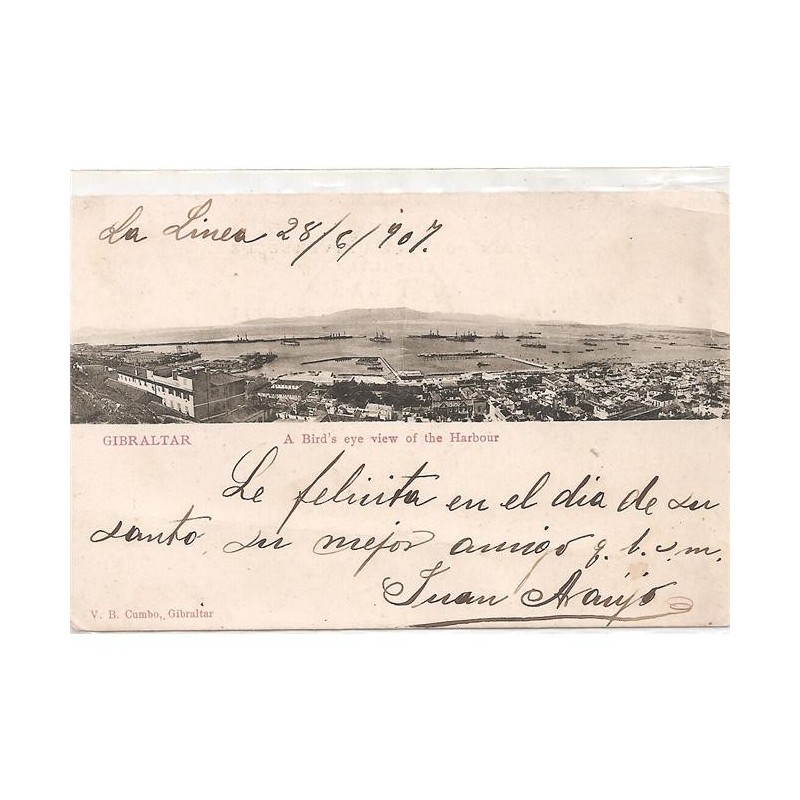 La Linea 28/6/907.
GIBRALTAR A Bird's eye view of the Harbour
Le felicita en el dia de su
santo, su mejor amigo q. b. s. m.
Juan Araujo
V. B. Cumbo, Gibraltar